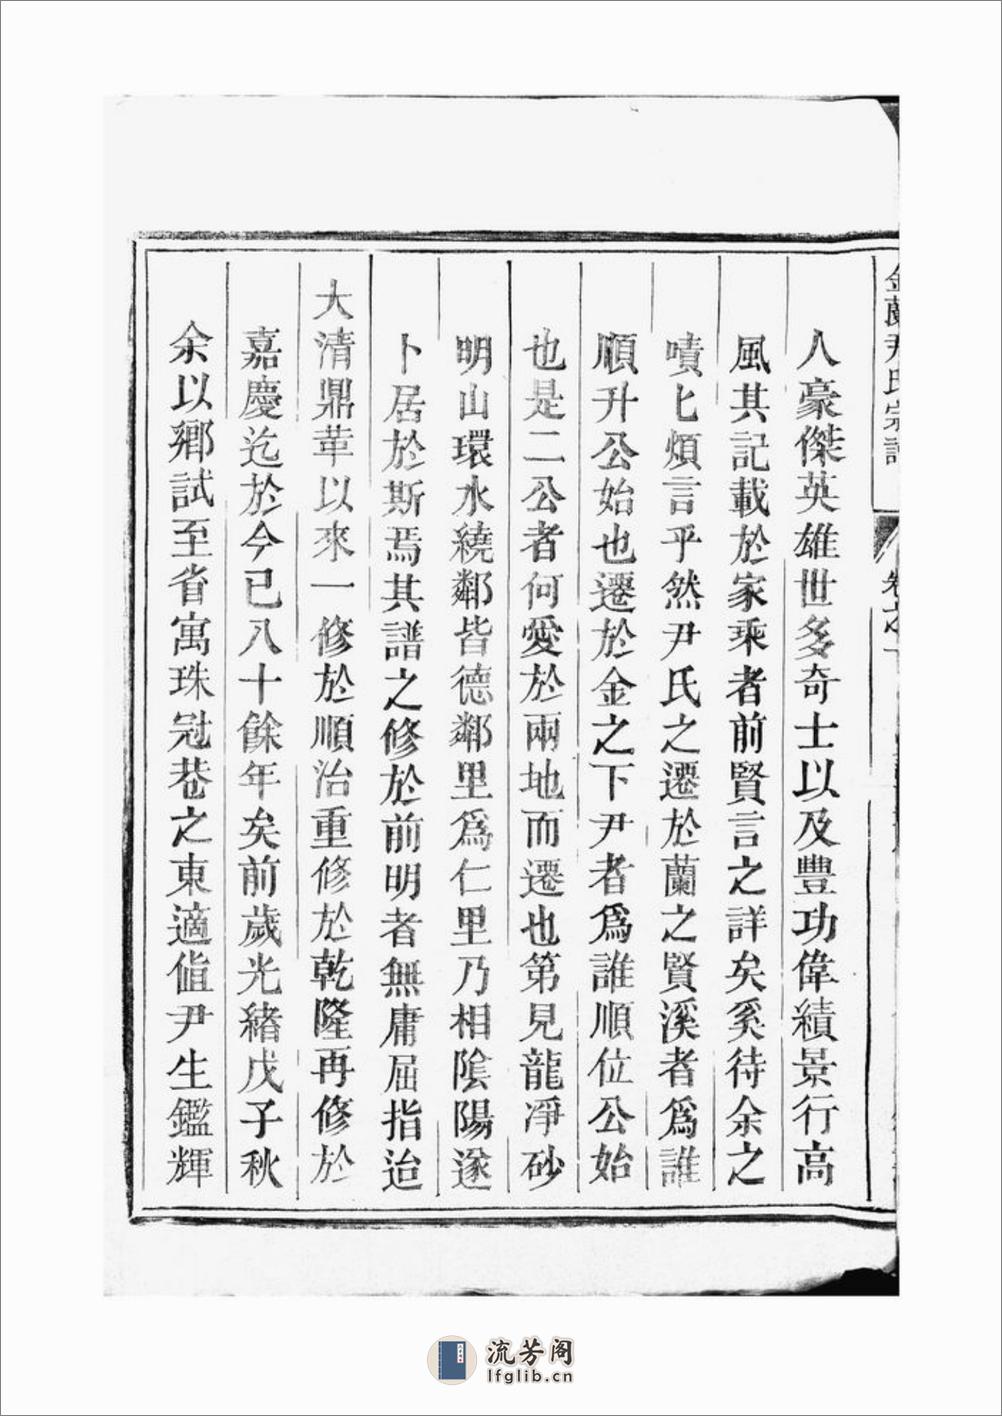 金蘭尹氏宗譜
卷之
人豪傑英雄世多奇士以及豐功偉績景行高
風其記載於家乘者前賢言之詳矣奚待余之
嘖匕煩言乎然尹氏之遷於蘭之賢溪者爲誰
順升公始也遷於金之下尹者爲誰順位公始
也是二公者何愛於兩地而遷也第見龍淨砂
明山環水繞鄰皆德鄰里爲仁里乃相陰陽遂
卜居於斯焉其譜之修於前明者無庸屈指迨
大清鼎革以來一修於順治重修於乾隆再修於
嘉慶迄於今已八十餘年矣前歲光緒戊子秋
余以鄉試至省寓珠冠巷之東適値尹生鑑輝
流芳阁
lfglib.cn